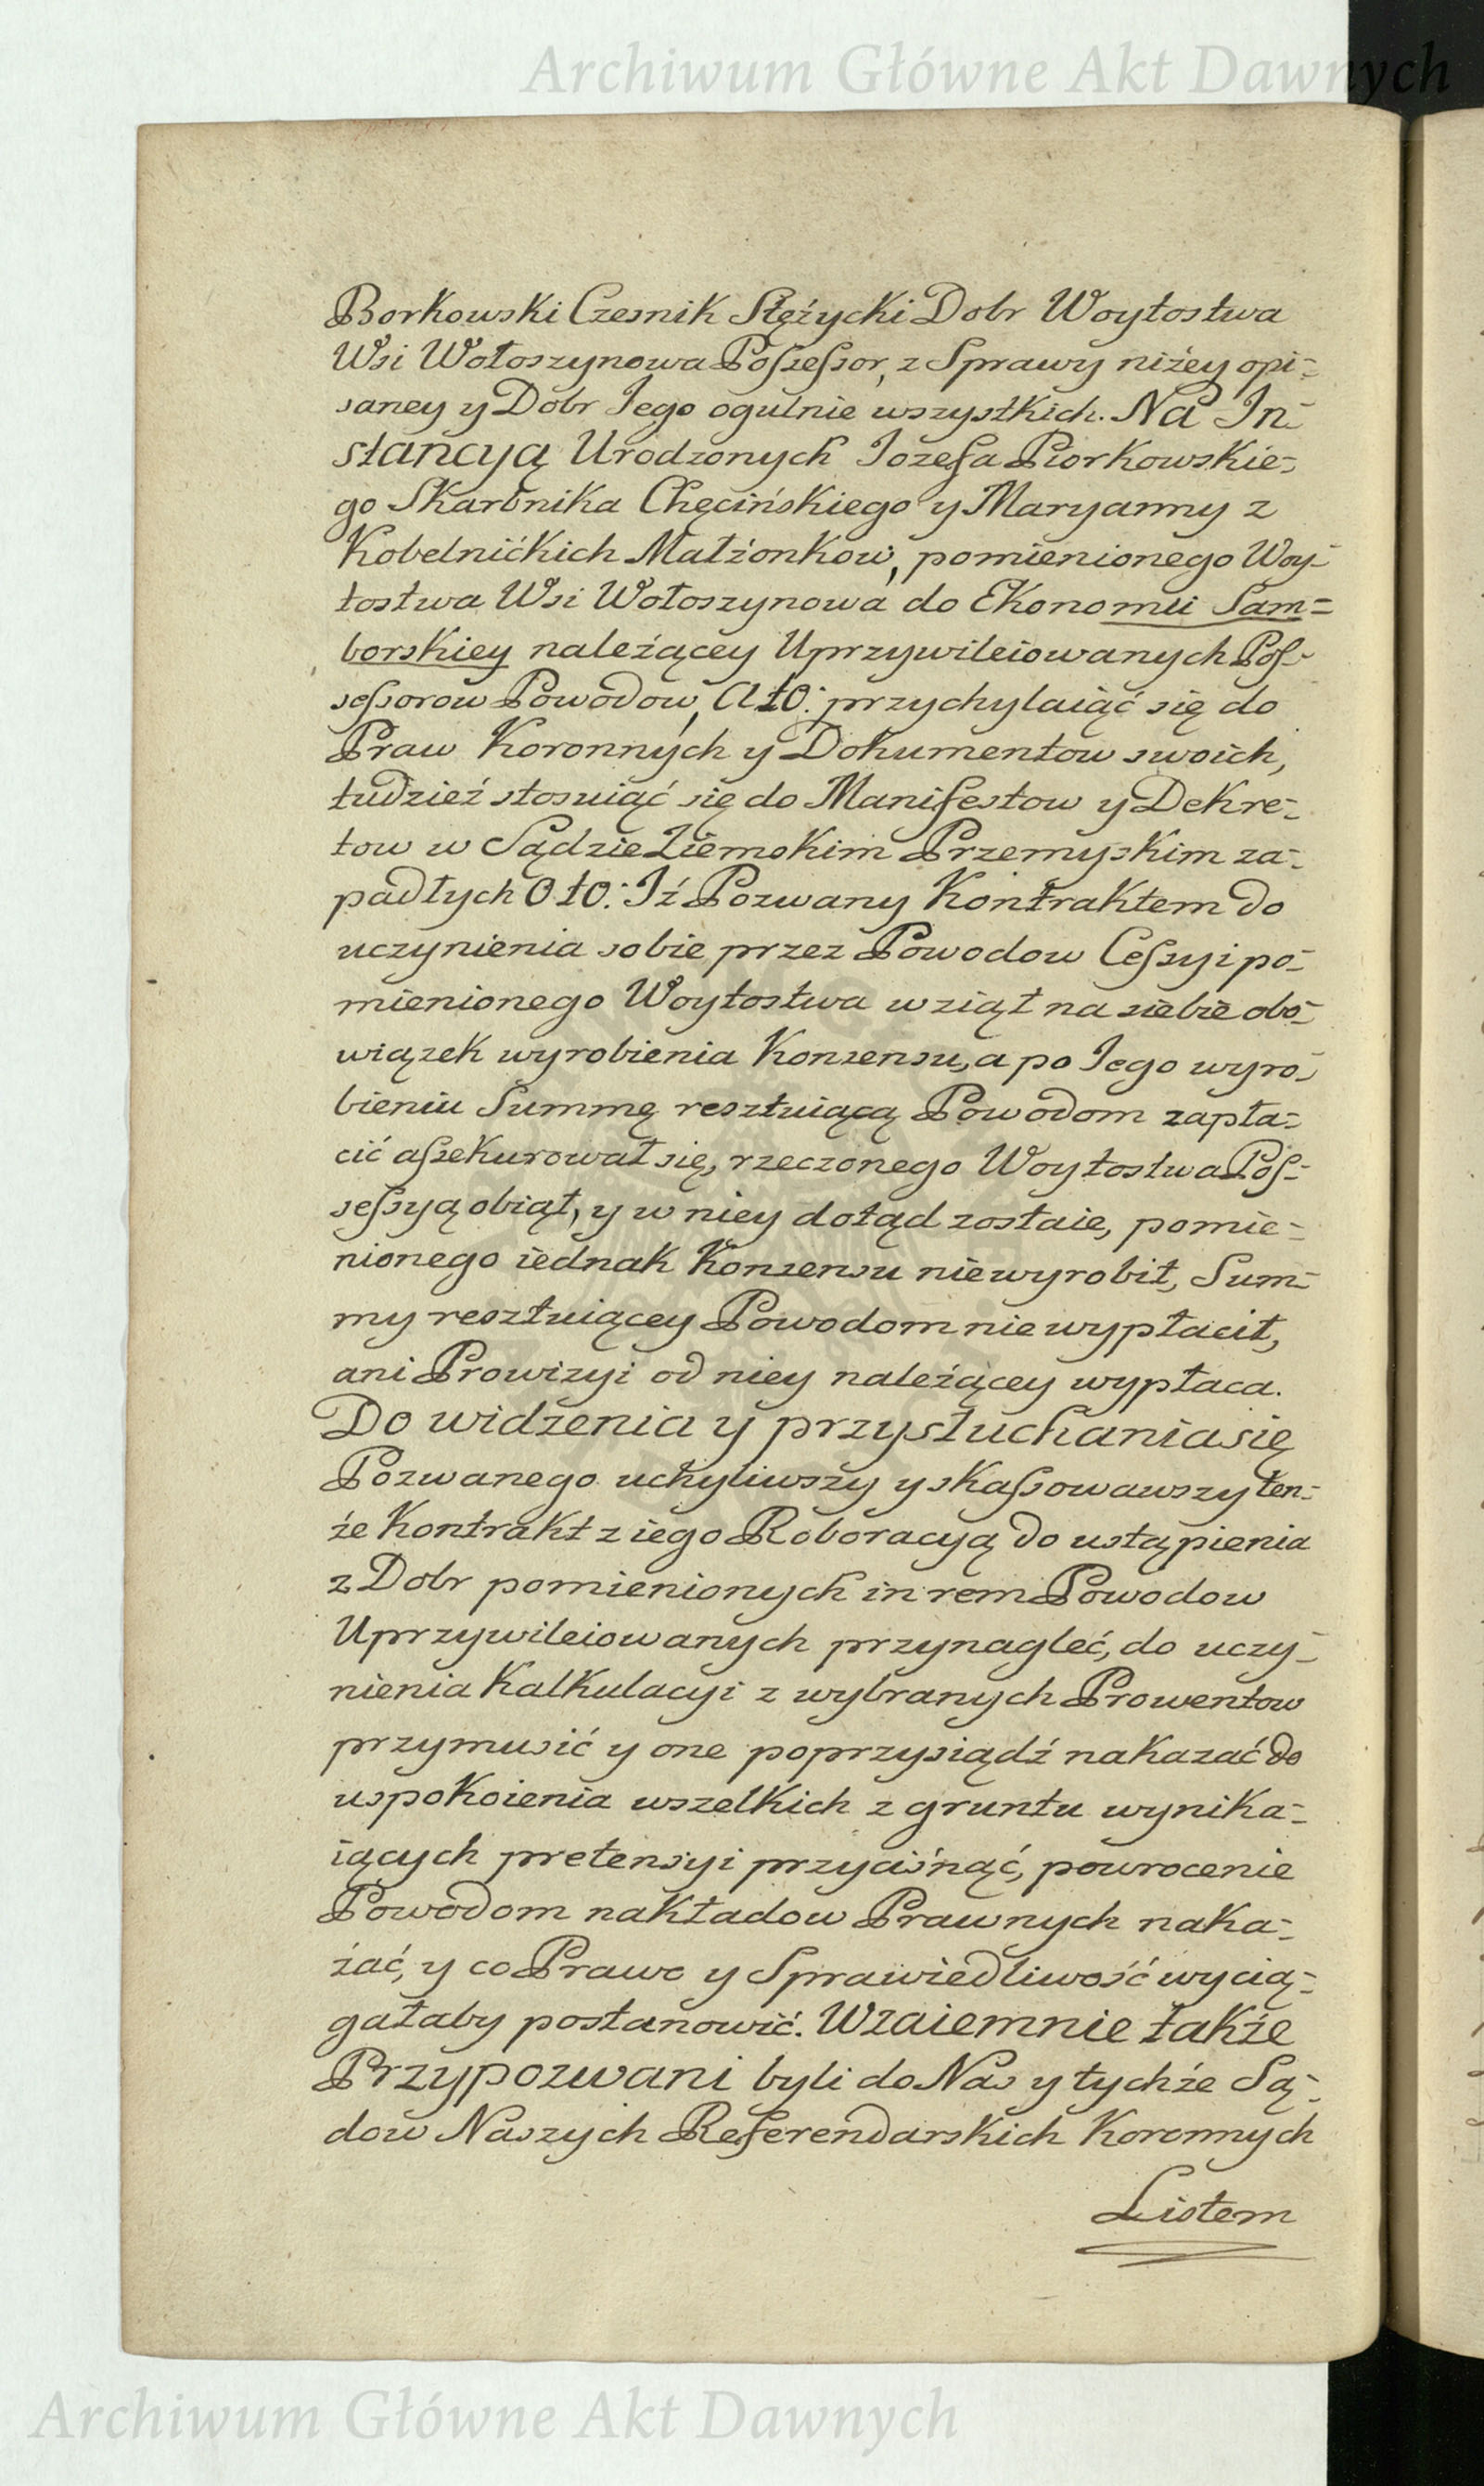 Archiwum Główne Akt Dawnych
Borkowski Czesnik Stężycki Dobr Woytostwa
Wsi Wołoszynowa Possessor, z Sprawy niżey opi-
saney y Dobr Jego ogulnie wszystkich. Na In-
stancyą Urodzonych Jozefa Piorkowskie-
go Skarbnika Chęcińskiego y Maryanny z
Kobelnićkich Małżonkow, pomienionego Woy-
tostwa Wsi Wołoszynowa do Ekonomii Sam=
borskiey należącey Uprzywileiowanych Pos-
sessorow Powodow, A to: przychylaiąć się do
Praw Koronnych y Dokumentow swoich,
tudzież stosuiąć się do Manifestow y Dekre-
tow w Sądzie Ziemskim Przemyskim za-
padłych O to: Iż Pozwany Kontraktem do
uczynienia sobie przez Powodow Cessyi po-
mienionego Woytostwa wziął na siebie obo-
wiązek wyrobienia Konsensu, a po Jego wyro-
bieniu Summę resztuiącą Powodom zapła-
cić assekurował się, rzeczonego Woytostwa Pos-
sessyą obiął, y w niey dotąd zostaie, pomie-
nionego iednak Konsensu niewyrobił, Sum-
my resztuiącey Powodom nie wypłacił,
ani Prowizyi od niey należącey wypłaca.
Do widzenia y przysłuchania się
Pozwanego uchyliwszy y skassowawszy ten-
że Kontrakt z iego Roboracyą do ustąpienia
z Dobr pomienionych in rem Powodow
Uprzywileiowanych przynagleć, do uczy-
nienia Kalkulacyi z wybranych Prowentow
przymusić y one poprzysiądź nakazać do
uspokoienia wszelkich z gruntu wynika-
iących pretensyi przyciśnąć, powrocenie
Powodom nakładow Prawnych naka-
zać, y co Prawo y Sprawiedliwość wycią-
gałaby postanowić. Wzaiemnie także
Przypozwani byli do Nas y tychże Są-
dow Naszych Referendarskich Koronnych
Listem
Archiwum Główne Akt Dawnych